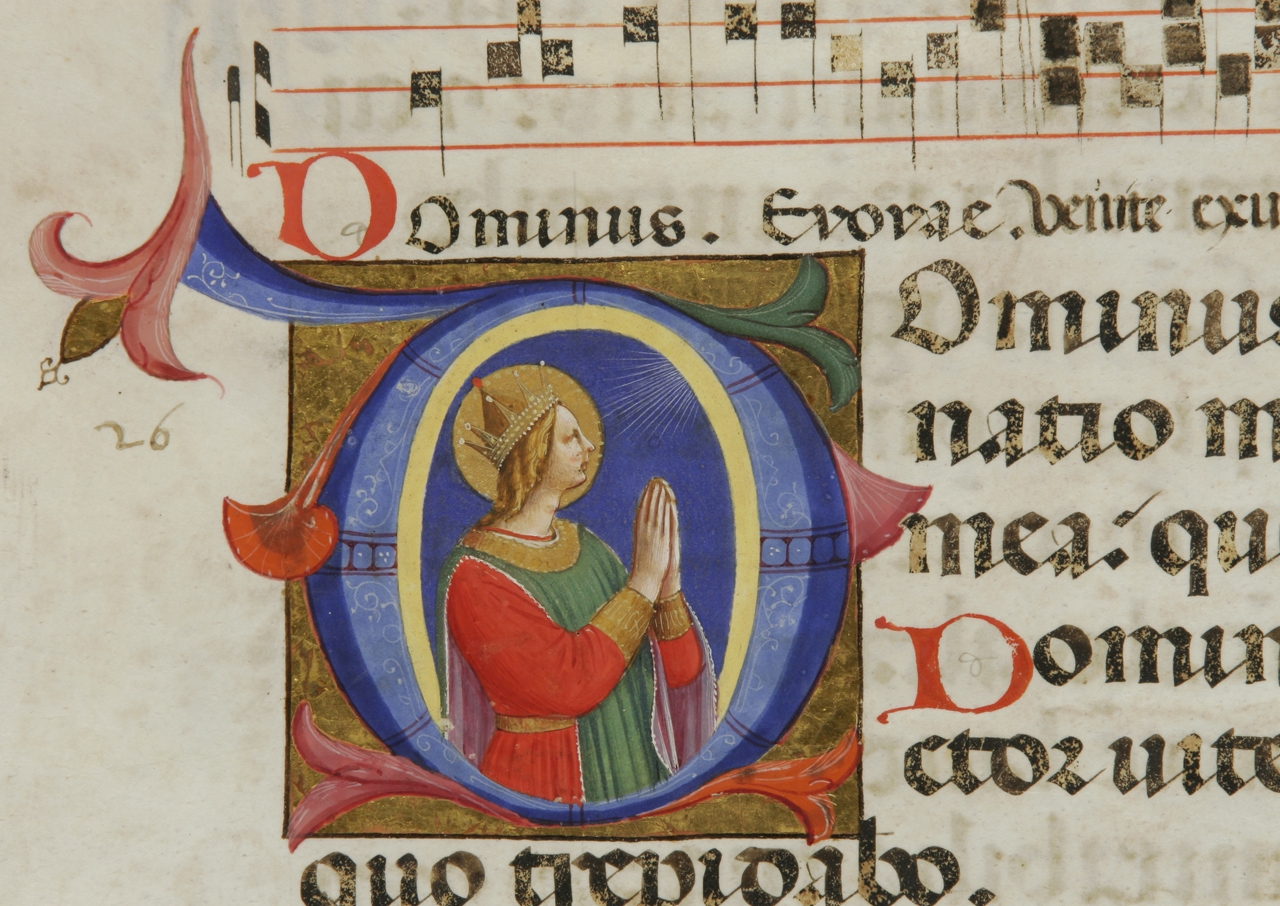 Dominus. Evovae. Venite exu
Dominus
natio m
26
mea: qu
Domin
ctor uite
quo trepidabo.